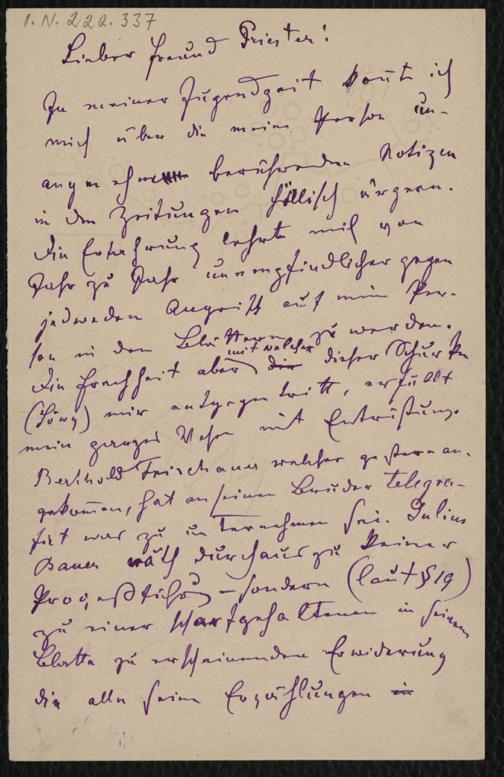 I.N. 222.337
Lieber Freund Priester!
In meiner Jugendzeit konnt ich
mich über die meine Person un-
angenehm berührenden Notizen
in den Zeitungen höllisch ärgern.
Die Erfahrung lehrte mich von
Jahr zu Jahr unempfindlicher gegen
jedweden Angriff auf meine Per-
son in den Blättern zu werden.
Die Frechheit aber mit welcher dieser Schurke
(Löwy) mir entgegen tritt, erfüllt
mein ganzes Wesen mit Entrüstung.
Berthold Frischauer welcher gestern an-
gekommen, hat an seinen Bruder telegra-
firt was zu unternehmen sei. Julius
Bauer räth durchaus zu keiner
Proceßführung – sondern (laut § 19)
zu einer scharfgehaltenen in seinem
Blatte zu erscheinenden Erwiderung
die alle seine Erzählungen in